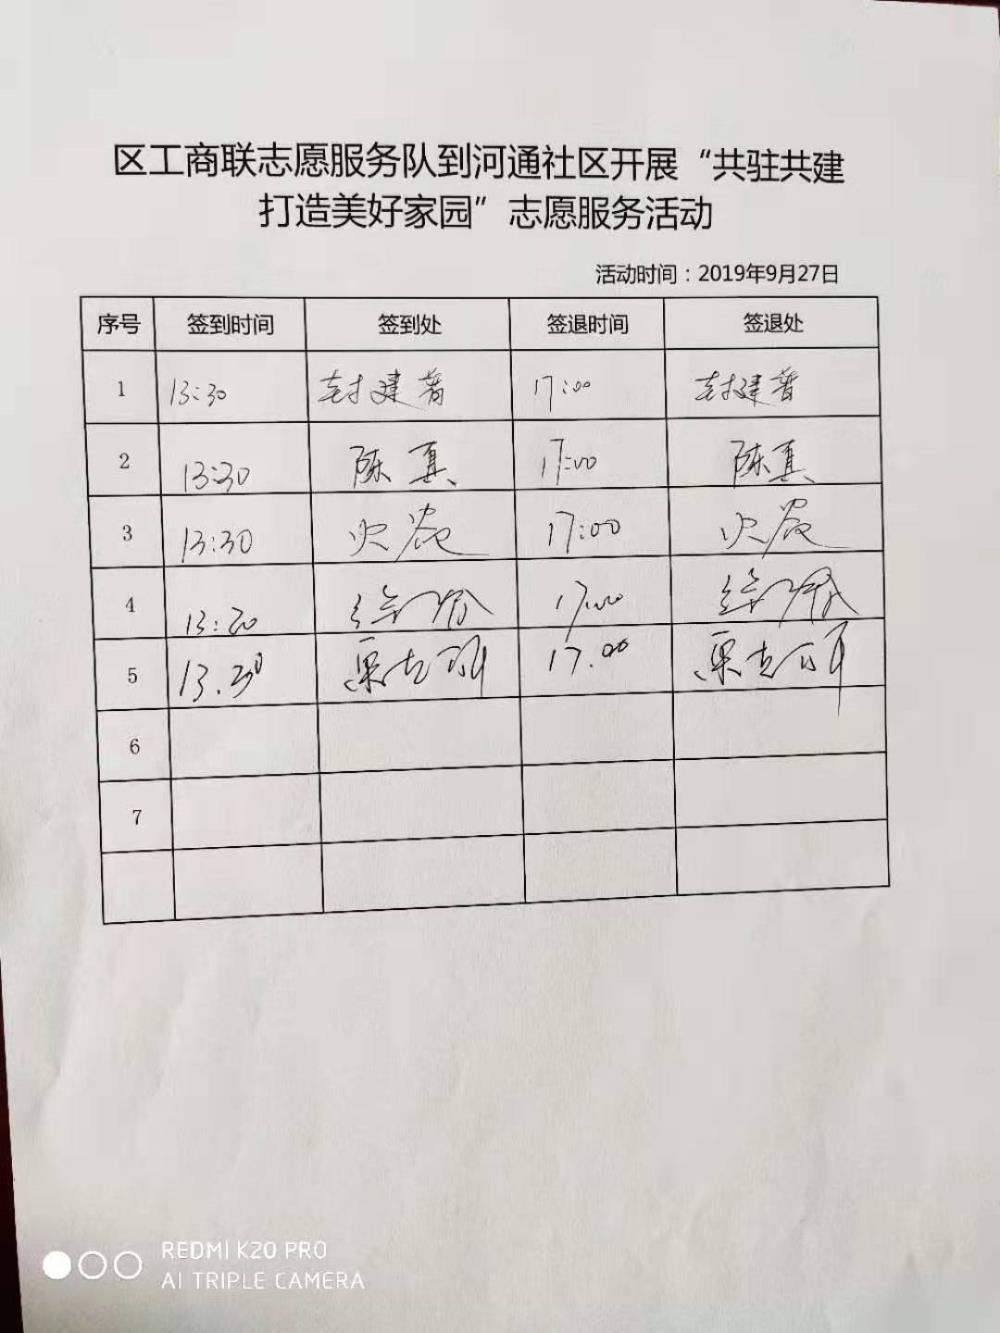 区工商联志愿服务队到河通社区开展“共驻共建
打造美好家园”志愿服务活动
活动时间：2019年9月27日
序号 签到时间 签到处 签退时间 签退处
1 13:30 封建普 17:00 封建普
2 13:30 陈真 17:00 陈真
3 13:30 17:00
4 13:30 17:00
5 13.30 17.00
6
7
REDMI K20 PRO
AI TRIPLE CAMERA